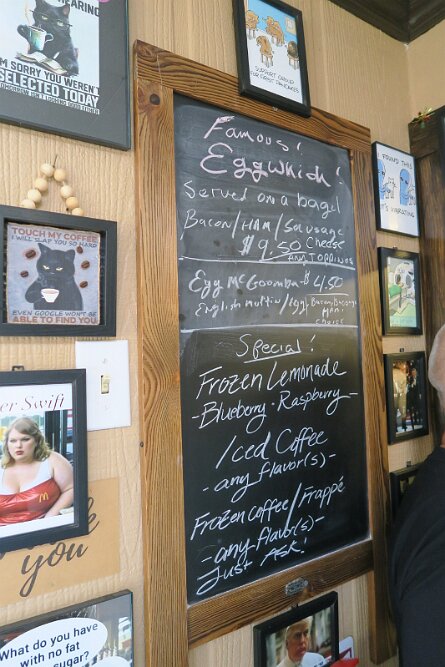 HEARING
I'M SORRY YOU WEREN'T
SELECTED TODAY
TOMORROW ISN'T LOOKING GOOD EITHER
SUPPORT GROUP
TOUCH MY COFFEE
I WILL SLAP YOU SO HARD
EVEN GOOGLE WON'T BE
ABLE TO FIND YOU
er Swift
k
you
What do you have
with no fat
sugar?
Famous!
Eggwhich!
Served on a bagel
Bacon/HAM/Sausage
$9.50 Cheese
Any TOPPINGS
Egg McGoomba $4.50
English muffin/egg/
Ham
cheese
Special!
Frozen Lemonade
-Blueberry-Raspberry-
Iced Coffee
- any flavor(s) -
Frozen Coffee/Frappé
- any flavor(s) -
Just Ask!
I FOUND THIS
IT'S VIBRATING